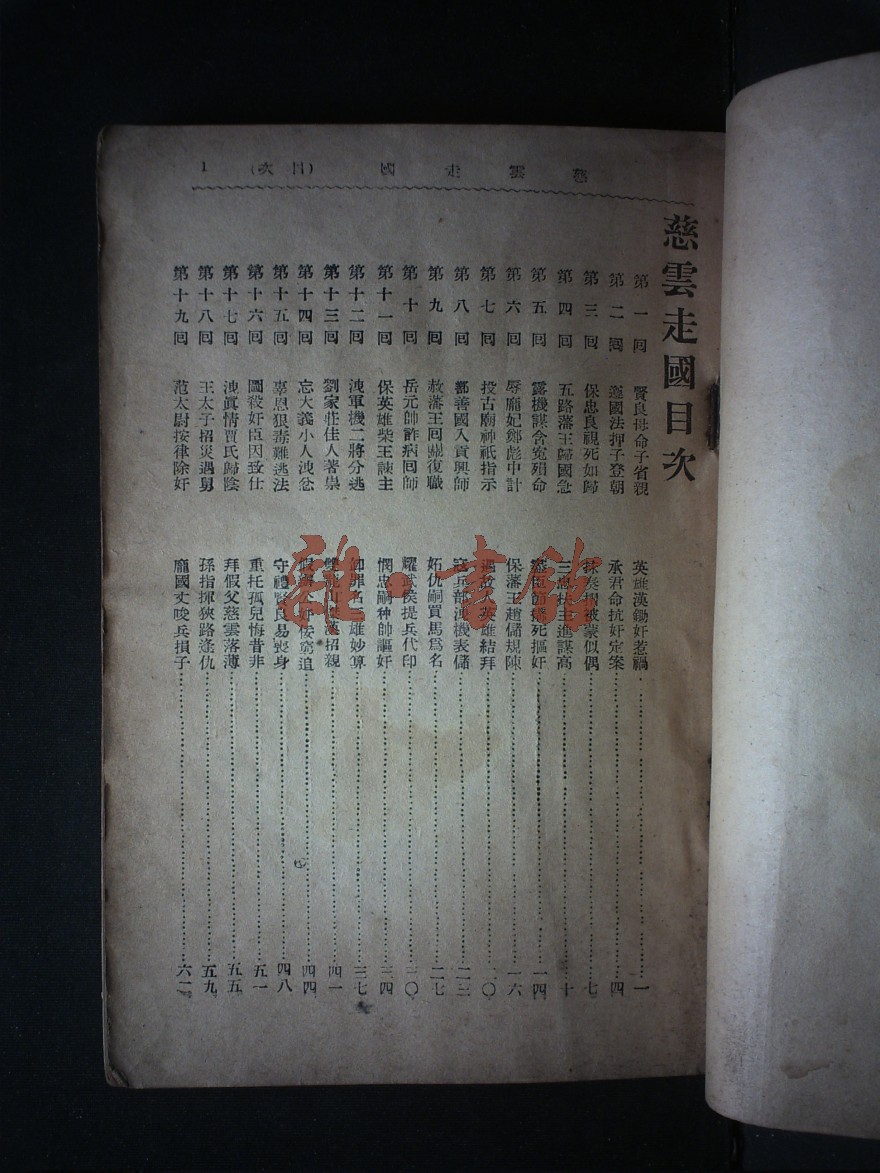 慈雲走國 (目次) 1
慈雲走國目次
第一回 賢良母命子省親 英雄漢鋤奸惹禍 一
第二回 遵國法押子登朝 承君命抗奸定案 四
第三回 保忠良視死如歸 被蒙似偶 七
第四回 五路藩王歸國急 三忠扶主進謀高 十
第五回 露機謀含寃殞命 死摳奸 一四
第六回 辱龐妃鄭彪中計 保藩王趙儲規陳 一六
第七回 投古廟神祇指示 遇故人英雄結拜 二〇
第八回 鄯善國入貢興師 寇兵部洩機表儲 二三
第九回 赦藩王回鼎復職 妬仇嗣買馬為名 二七
第十回 岳元帥詐病回師 耀武侯提兵代印 三〇
第十一回 保英雄柴王諫主 憫忠嗣种帥謳奸 三四
第十二回 洩軍機二將分逃 卸罪名三雄妙算 三七
第十三回 劉家莊佳人著祟 招親 四一
第十四回 忘大義小人洩忿 窮追 四四
第十五回 辜恩狠毒難逃法 守禮賢良易喪身 四八
第十六回 圖殺奸臣因致仕 重托孤兒悔昔非 五一
第十七回 洩眞情賈氏歸陰 拜假父慈雲落薄 五五
第十八回 王太子招災遇舅 孫指揮狹路逢仇 五九
第十九回 范太尉按律除奸 龐國丈唆兵損子 六二
雜·書館